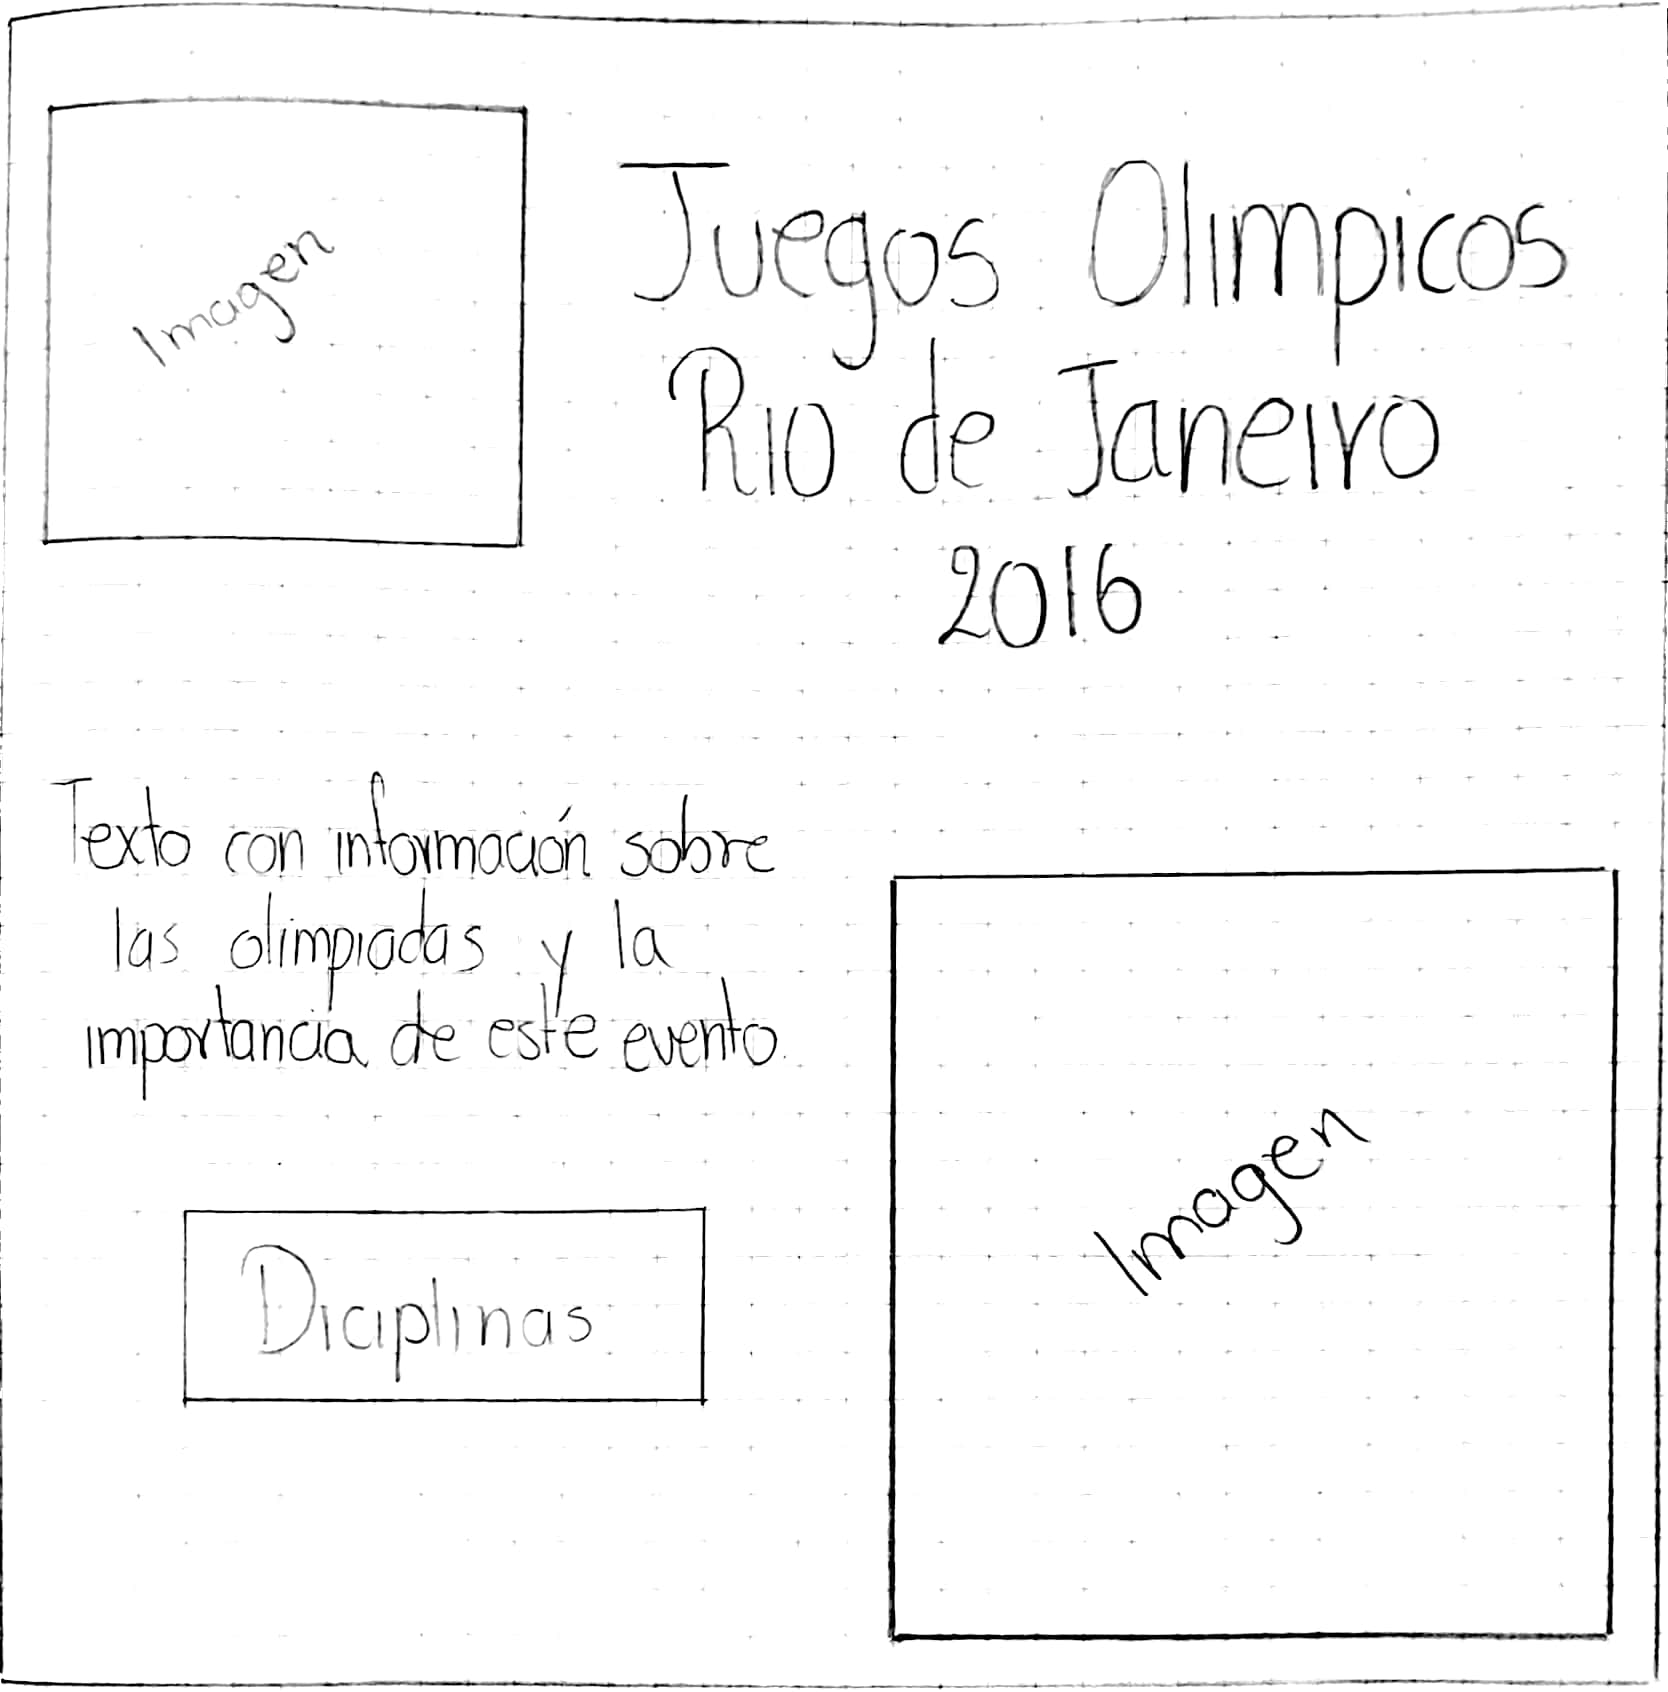 Imagen
Juegos Olimpicos
Rio de Janeiro
2016
Texto con información sobre
las olimpiadas y la
importancia de este evento.
Imagen
Diciplinas